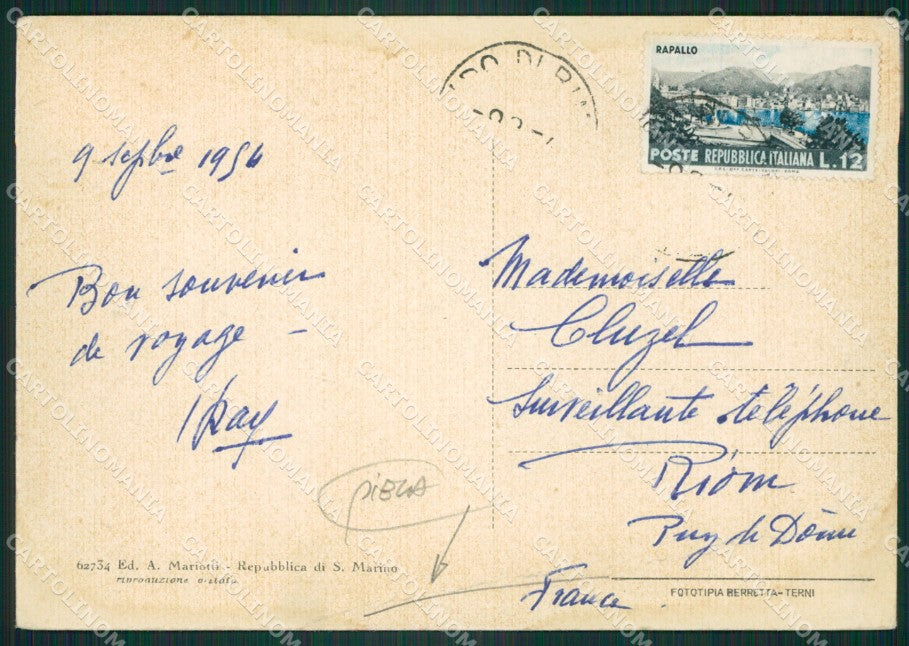 RAPALLO
POSTE REPUBBLICA ITALIANA L.12
9 septbre 1954
Bon souvenir
de voyage -
Mademoiselle
Cluzel
Surveillante téléphone
Riom
Puy de Dôme
France
PIEGA
62734 Ed. A. Mariotti - Repubblica di S. Marino
riproduzione vietata
FOTOTIPIA BERRETTA-TERNI
CARTOLINOMANIA